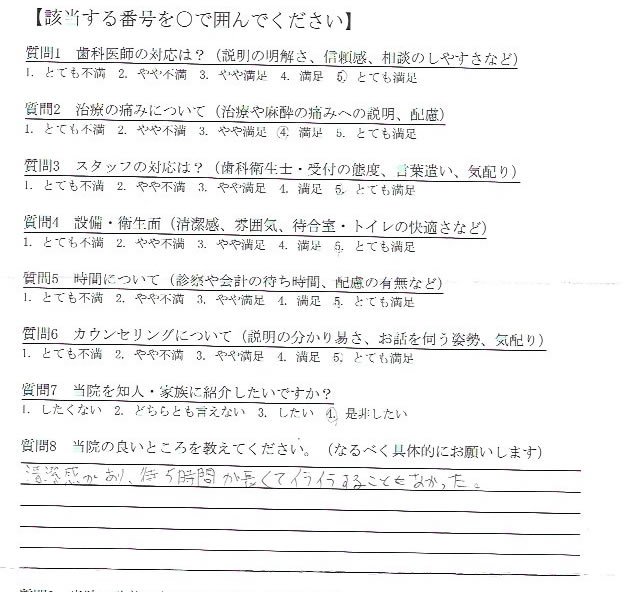 【該当する番号を○で囲んでください】
質問1 歯科医師の対応は？（説明の明解さ、信頼感、相談のしやすさなど）
1. とても不満 2. やや不満 3. やや満足 4. 満足 5. とても満足
質問2 治療の痛みについて（治療や麻酔の痛みへの説明、配慮）
1. とても不満 2. やや不満 3. やや満足 4. 満足 5. とても満足
質問3 スタッフの対応は？（歯科衛生士・受付の態度、言葉遣い、気配り）
1. とても不満 2. やや不満 3. やや満足 4. 満足 5. とても満足
質問4 設備・衛生面（清潔感、雰囲気、待合室・トイレの快適さなど）
1. とても不満 2. やや不満 3. やや満足 4. 満足 5. とても満足
質問5 時間について（診察や会計の待ち時間、配慮の有無など）
1. とても不満 2. やや不満 3. やや満足 4. 満足 5. とても満足
質問6 カウンセリングについて（説明の分かり易さ、お話を伺う姿勢、気配り）
1. とても不満 2. やや不満 3. やや満足 4. 満足 5. とても満足
質問7 当院を知人・家族に紹介したいですか？
1. したくない 2. どちらとも言えない 3. したい 4. 是非したい
質問8 当院の良いところを教えてください。（なるべく具体的にお願いします）
清潔感があり、待ち時間が長くてイライラすることもなかった。